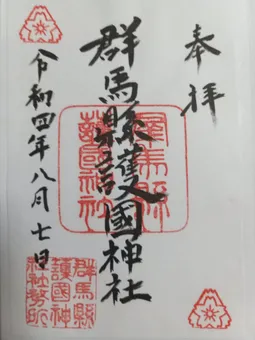 奉拝
群馬縣護國神社
令和四年八月七日
群馬縣
護國神
社社務所